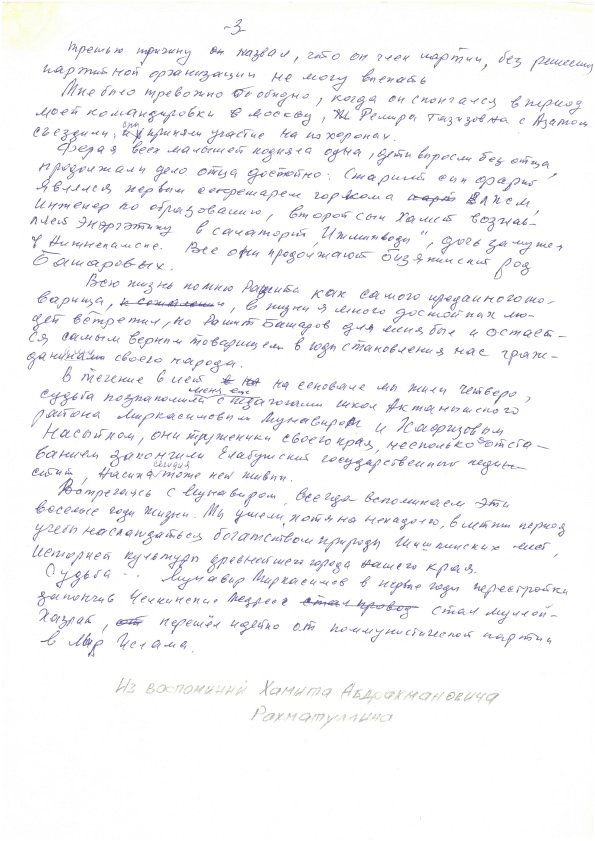 -3
Третью причину он назвал, что он член партии, без решения
партийной организации не могу
Мне было тревожно и обидно, когда он скончался в период
моей командировки в Москву, Ремира Газизовна с Азатом
съездили, и приняли участие на похоронах.
Ферая всех малышей подняла одна, дети выросли без отца,
продолжали дело отца достойно. Старший сын
являлся первым секретарем горкома ВЛКСМ,
инженер по образованию, второй сын Халит возглав-
ляет энергетику в санатории, дочь замужем
в Нижнекамске. Все они продолжают бизякинский род
Башаровых.
Всю жизнь помню Рашита как самого преданного то-
варища, к сожалению, в жизни я много достойных лю-
дей встретил, но Рашит Башаров для меня был и остает-
ся самым верным товарищем в годы становления нас граж-
данами своего народа.
В течение в лет на сеновале мы жили четверо,
судьба познакомила меня с педагогами школ Актанышского
района Миркасимовым Мунавиром и Хафизовым
Насыйхом, они труженики своего края, несколько отста-
ванием закончили Елабужский государственный педин-
ститут, сегодня тоже нет живых.
Встречаясь с Мунавиром, всегда вспоминаем эти
веселые годы жизни. Мы умели, хотя на ненадолго, в летний период
учебы наслаждаться богатством природы Шишкинских мест,
историей культуры древнейшего города нашего края.
Судьба .. Мунавир Миркасимов в первые годы перестройки
закончив медресе стал провод стал муллой-
Хазрат, от перешел идейно от коммунистической партии
в Мир Ислама.
Из воспоминий Хамита Абдрахмановича
Рахматуллина